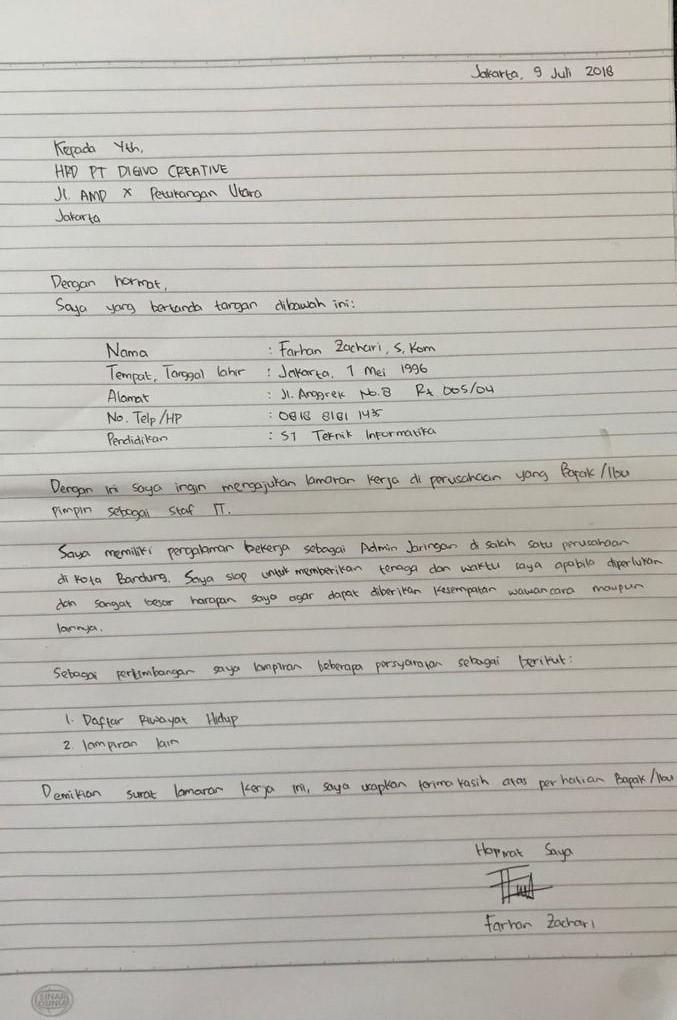 Jakarta, 9 Juli 2018
Kepada Yth,
HRD PT DIGIVO CREATIVE
Jl. AMD X Petukangan Utara
Jakarta
Dengan hormat,
Saya yang bertanda tangan dibawah ini:
Nama : Farhan Zachari, S, Kom
Tempat, Tanggal lahir : Jakarta, 1 Mei 1996
Alamat : Jl. Anggrek No.8 Rt 005/04
No. Telp/HP : 0818 8181 1435
Pendidikan : S1 Teknik Informatika
Dengan ini saya ingin mengajukan lamaran kerja di perusahaan yang Bapak/Ibu
Pimpin sebagai staf IT.
Saya memiliki pengalaman bekerja sebagai Admin Jaringan di salah satu perusahaan
di kota Bandung. Saya siap untuk memberikan tenaga dan waktu saya apabila diperlukan
dan sangat besar harapan saya agar dapat diberikan kesempatan wawancara maupun
lainnya.
Sebagai pertimbangan saya lampiran beberapa persyaratan sebagai berikut:
1. Daftar Riwayat Hidup
2. lampiran lain
Demikian surat lamaran kerja ini, saya ucapkan terima kasih atas perhatian Bapak/Ibu
Hormat Saya
Farhan Zachari
SINAR DUNIA